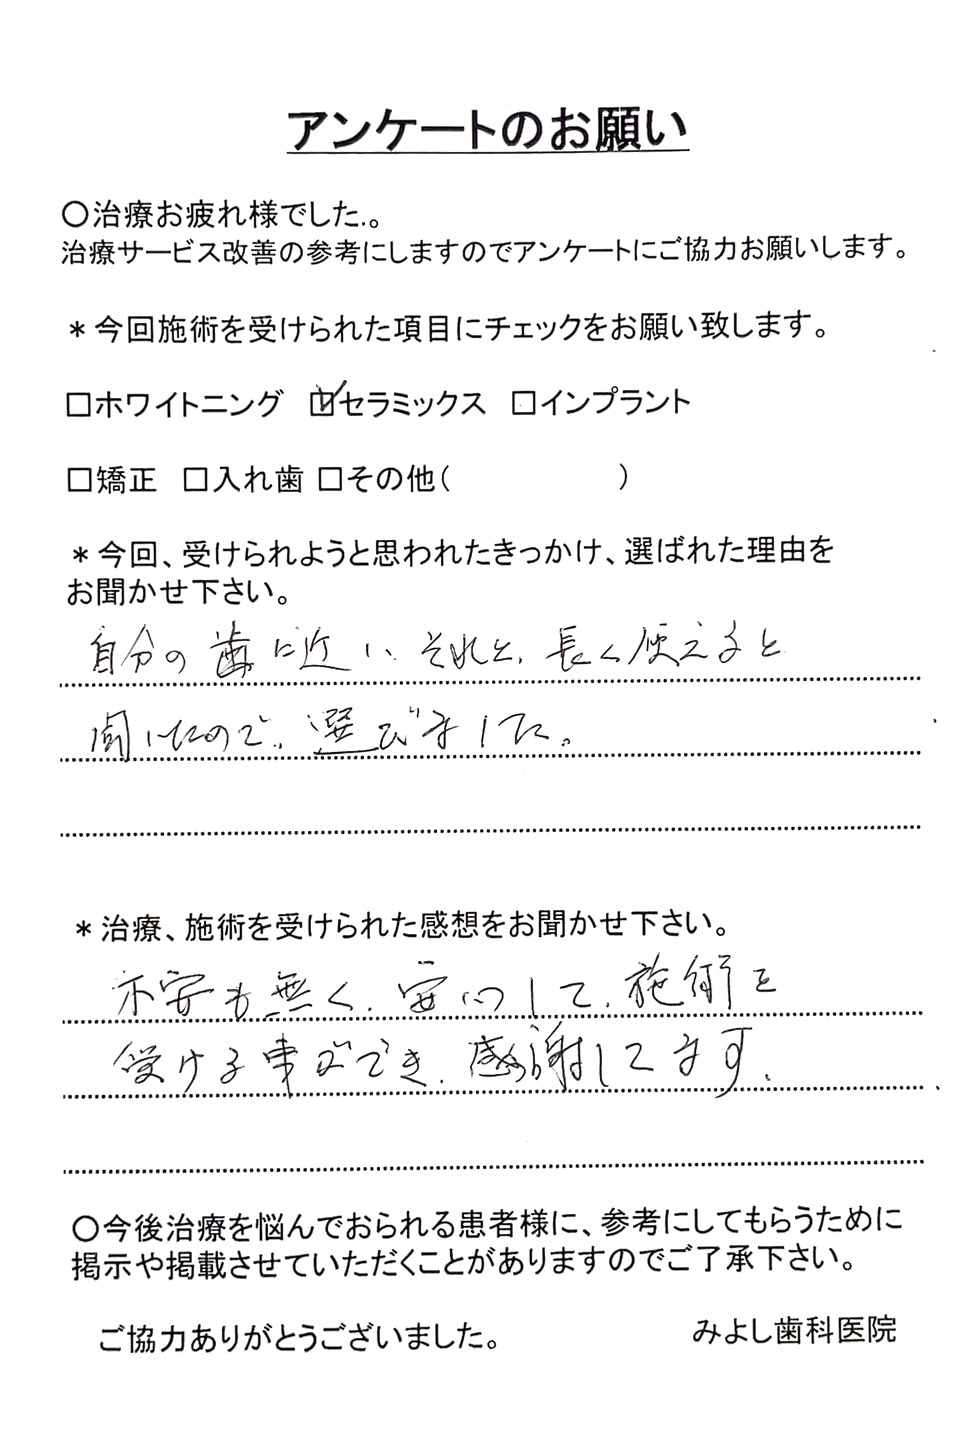 アンケートのお願い
〇治療お疲れ様でした.。
治療サービス改善の参考にしますのでアンケートにご協力お願いします。
＊今回施術を受けられた項目にチェックをお願い致します。
□ホワイトニング ☑セラミックス □インプラント
□矯正 □入れ歯 □その他( )
＊今回、受けられようと思われたきっかけ、選ばれた理由を
お聞かせ下さい。
自分の歯に近い、それと、長く使えると
聞いたので、選びました。
＊治療、施術を受けられた感想をお聞かせ下さい。
不安も無く、安心して、施術を
受ける事ができ、感謝してます、
〇今後治療を悩んでおられる患者様に、参考にしてもらうために
掲示や掲載させていただくことがありますのでご了承下さい。
ご協力ありがとうございました。 みよし歯科医院